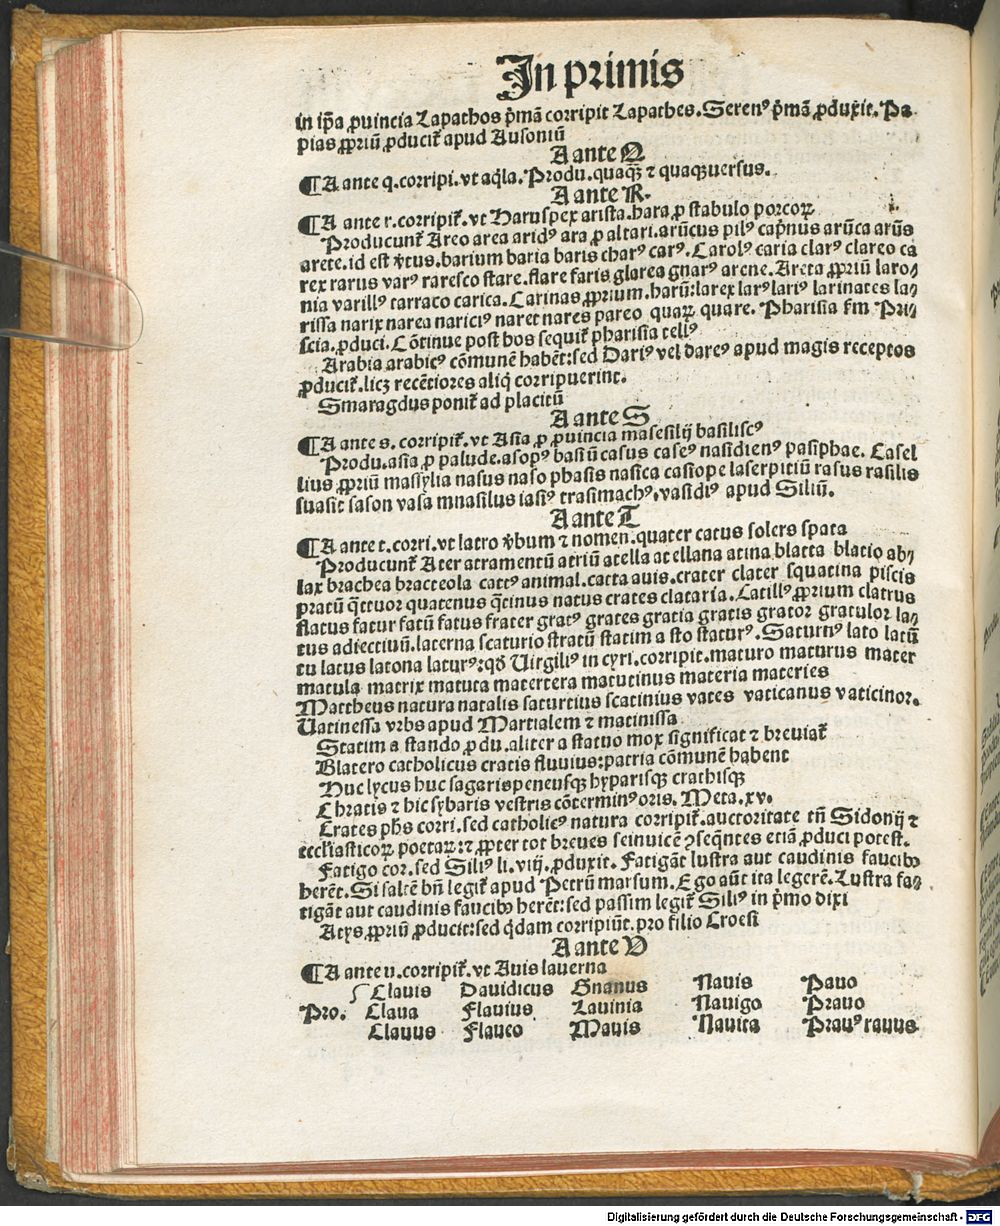 In primis
in ip̄a ꝓuincia Lapathos p̄mā corripit Lapathes. Serenꝰ p̄mā ꝓduxit. Pa-
pias ꝓpriū ꝓducit᷑ apud Ausoniū
A ante Q
¶A ante q. corripi. vt aq̇la. Produ. quaqȝ ⁊ quaqȝuersus.
A ante R.
¶A ante r. corripit᷑. vt Haruspex arista. hara ꝓ stabulo porcoꝝ
Producunt᷑ Areo area aridꝰ ara ꝓ altari. arūcus pilꝰ cap̄nus arūca arūs
arete. id est v̄tus. barium baria baris charꝰ carꝰ. Carolꝰ caria clarꝰ clareo ca
rex rarus varꝰ raresco stare. flare faris glarea gnarꝰ arene. Areta ꝓpriū laro-
nia varillꝰ tarraco carica. Carinas ꝓprium. harū: larex larꝰ lariꝰ larinates la-
rissa narix narea nariciꝰ naret nares pareo quaꝝ quare. Pharisia fm Pri-
scia. ꝓduci. Cōtinue post hos sequit᷑ pharisia tellꝰ
Arabia arabicꝰ cōmunē habēt: sed Dariꝰ vel dareꝰ apud magis receptos
ꝓducit᷑. licȝ recētiores aliq̇ corripuerint.
Smaragdus ponit᷑ ad placitū
A ante S
¶A ante s. corripit᷑. vt Asia ꝓ ꝓuincia masesilij basiliscꝰ
Produ. asia ꝓ palude. asopꝰ basiū casus caseꝰ nasidienꝰ pasiphae. Casel
lius ꝓpriū massylia nasus naso phasis nasica casiope laserpitiū rasus rasilis
suasit sason vasa mnasilus iasiꝰ trasimachꝰ, vasidiꝰ apud Siliū.
A ante T
¶A ante t. corri. vt latro v̄bum ⁊ nomen. quater catus solers spata
Producunt᷑ Ater atramentū atriū atella at ellana atina blatta blatio ab-
lax brachea bracteola cattꝰ animal. catta auis. crater clater squatina piscis
pratū q̄ttuor quatenus q̄tinus natus crates clataria. Catillꝰ ꝓprium clatrus
flatus fatur fatū fatus frater gratꝰ grates gratia gratis grator gratulor la-
tus adiectiuū. laterna scaturio stratū statim a sto staturꝰ. Saturnꝰ lato latū
tu latus latona laturꝰ: qd̄ Uirgiliꝰ in cyri. corripit. maturo maturus mater
matula matrix matuta matertera matutinus materia materies
Mattheus natura natalis saturtius scatinius vates vaticanus vaticinor.
Uatinessa vrbs apud Martialem ⁊ matinissa
Statim a stando ꝓdu. aliter a statuo mox significat ⁊ breuiat᷑
Blatero catholicus cratis fluuius: patria cōmunē habent
Huc lycus huc sagaris peneusqȝ hyparisqȝ crathisqȝ
Chratis ⁊ hic sybaris vestris cōterminꝰ oris. Meta. xv.
Crates ph̄s corri. sed catholicꝰ natura corripit᷑. auctoritate tn̄ Sidonij ⁊
ecclīasticoꝝ poetaꝝ: ⁊ ꝓpter tot breues seinuicē ꝯseq̄ntes etiā ꝓduci potest.
Fatigo cor. sed Siliꝰ li. viij. ꝓduxit. Fatigāt lustra aut caudinis faucibȝ
herēt. Si saltē bn̄ legit᷑ apud Petrū marsum. Ego aūt ita legerē. Lustra fa-
tigāt aut caudinis faucibȝ herēt: sed passim legit᷑ Siliꝰ in p̄mo dixi
Atys ꝓpriū ꝓducit: sed q̇dam corripiūt. pro filio Croesi
A ante U
¶A ante u. corripit᷑. vt Auis lauerna
Clauis Dauidicus Gnauus Nauis Pauo
Pro. Claua Flauius Lauinia Nauigo Prauo
Clauus Flaueo Mauis Nauita Prauꝰ rauus
Digitalisierung gefördert durch die Deutsche Forschungsgemeinschaft - DFG